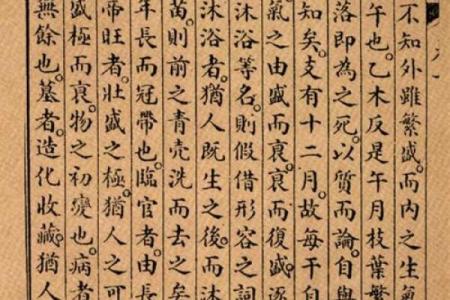 不知外雖繁盛。而内之生氣
午也。乙木反是。午月枝葉繁
落即為之死。以質而論。自與
知矣。支有十二月。故每干自
氣之由盛而衰。衰而復盛。逐
沐浴等名。則假借形容之詞
沐浴者。猶人既生之後。而沐
苗。則前之青壳洗而去之矣
年長而冠帶也。臨官者。由長
帝旺者。壯盛之極。猶人之可
盛極而衰。物之初變也。病者
無餘也。墓者。造化收藏。猶人